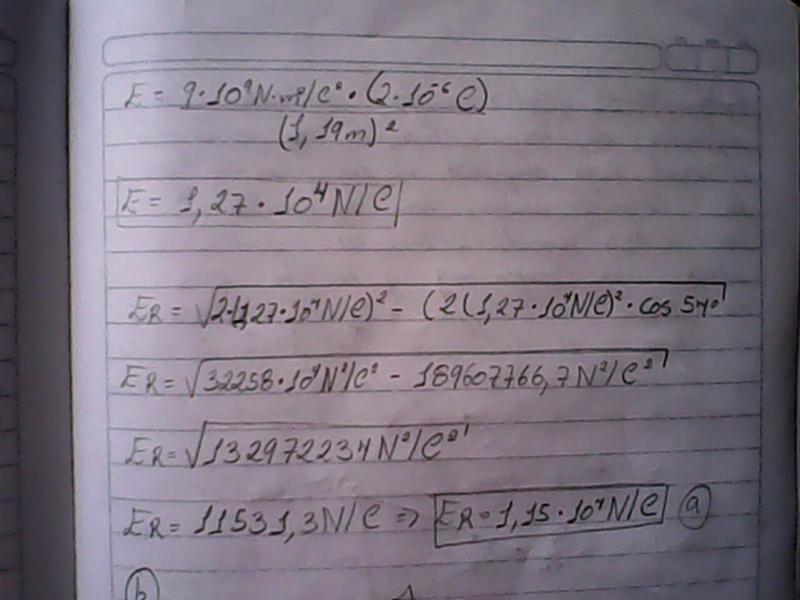 E = 9·10⁹N·m²/C²·(2·10⁻⁶C)
(1,19m)²
E = 1,27·10⁴N/C
ER = √2·(1,27·10⁴N/C)² - (2(1,27·10⁴N/C)²·cos 54°
ER = √32258·10⁴N²/C² - 189607766,7N²/C²
ER = √132972234N²/C²
ER = 11531,3N/C ⇒ ER = 1,15·10⁴N/C a
b